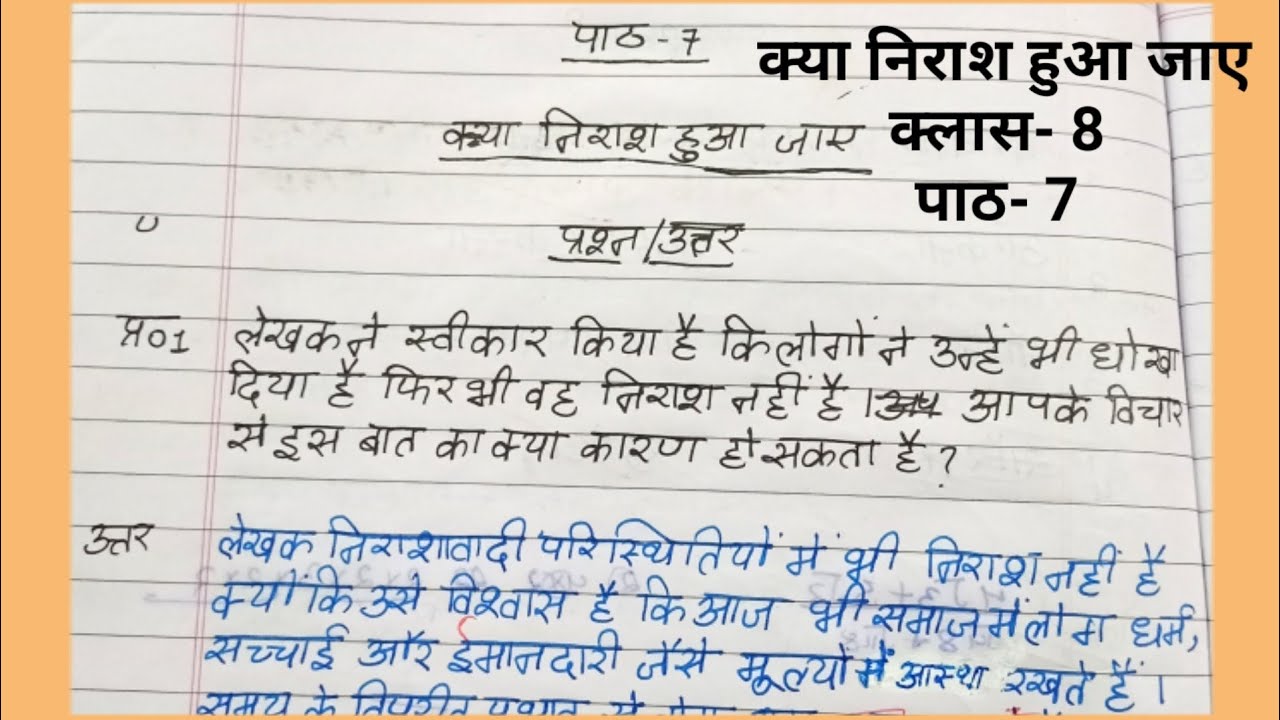 पाठ - 7
क्या निराश हुआ जाए
प्रश्न/उत्तर
प्र०1 लेखक ने स्वीकार किया है कि लोगों ने उन्हें भी धोखा
दिया है फिर भी वह निराश नहीं है । आपके विचार
से इस बात का क्या कारण हो सकता है ?
उत्तर लेखक निराशावादी परिस्थितियों में भी निराश नहीं है
क्योंकि उसे विश्वास है कि आज भी समाज में लोग धर्म,
सच्चाई और ईमानदारी जैसे मूल्यों में आस्था रखते हैं ।
समय के
क्या निराश हुआ जाए
क्लास- 8
पाठ- 7